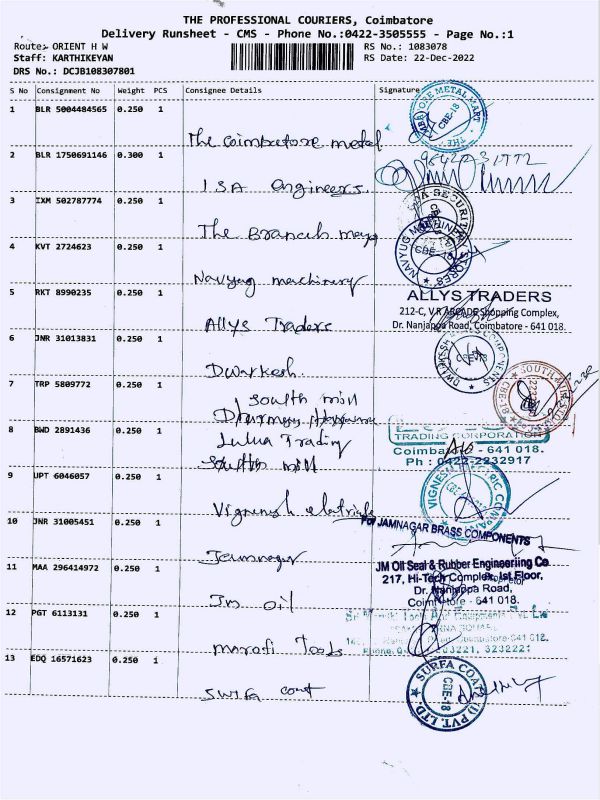 THE PROFESSIONAL COURIERS, Coimbatore
Delivery Runsheet - CMS - Phone No.:0422-3505555 - Page No.:1
Route: ORIENT H W
RS No.: 1083078
Staff: KARTHIKEYAN
RS Date: 22-Dec-2022
DRS No.: DCJB108307801
S No Consignment No Weight PCS Consignee Details Signature
1 BLR 5004484565 0.250 1
The coimbatore metal
2 BLR 1750691146 0.300 1
ISA engineers.
3 IXM 502787774 0.250 1
The Branch
4 KVT 2724623 0.250 1
NAVYUG
CBE-18
Navyug machinery
5 RKT 8990235 0.250 1
ALLYS TRADERS
212-C, V.R ARCADE Shopping Complex,
Dr. Nanjappa Road, Coimbatore - 641 018.
Allys Traders
6 JNR 31013831 0.250 1
Dwarkesh.
7 TRP 5809772 0.250 1
South mill
8 BWD 2891436 0.250 1
TRADING CORPORATION
Coimbatore - 641 018.
Ph : 0422-2232917
Trading
South mill
9 UPT 6046057 0.250 1
Vignesh
10 JNR 31005451 0.250 1
For JAMNAGAR BRASS COMPONENTS
Jamnagar
11 MAA 296414972 0.250 1
JM Oil Seal & Rubber Engineering Co
217, Hi-Tech Complex, Ist Floor,
Dr. Nanjappa Road,
Coimbatore - 641 018.
Jm oil
12 PGT 6113131 0.250 1
Tools
13 EDQ 16571623 0.250 1
SURFA COATS (I) PVT. LTD.
CBE-18